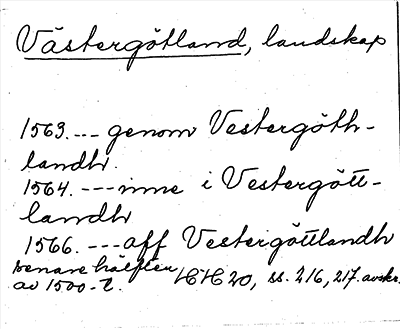 Västergötland, landskap
1563. --- genom Vestergöth-
landh.
1564. --- inne i Vestergött-
landh
1566. --- aff Vestergöttlandh
senare hälften
av 1500-t. HH 20, ss. 216, 217. avskr.